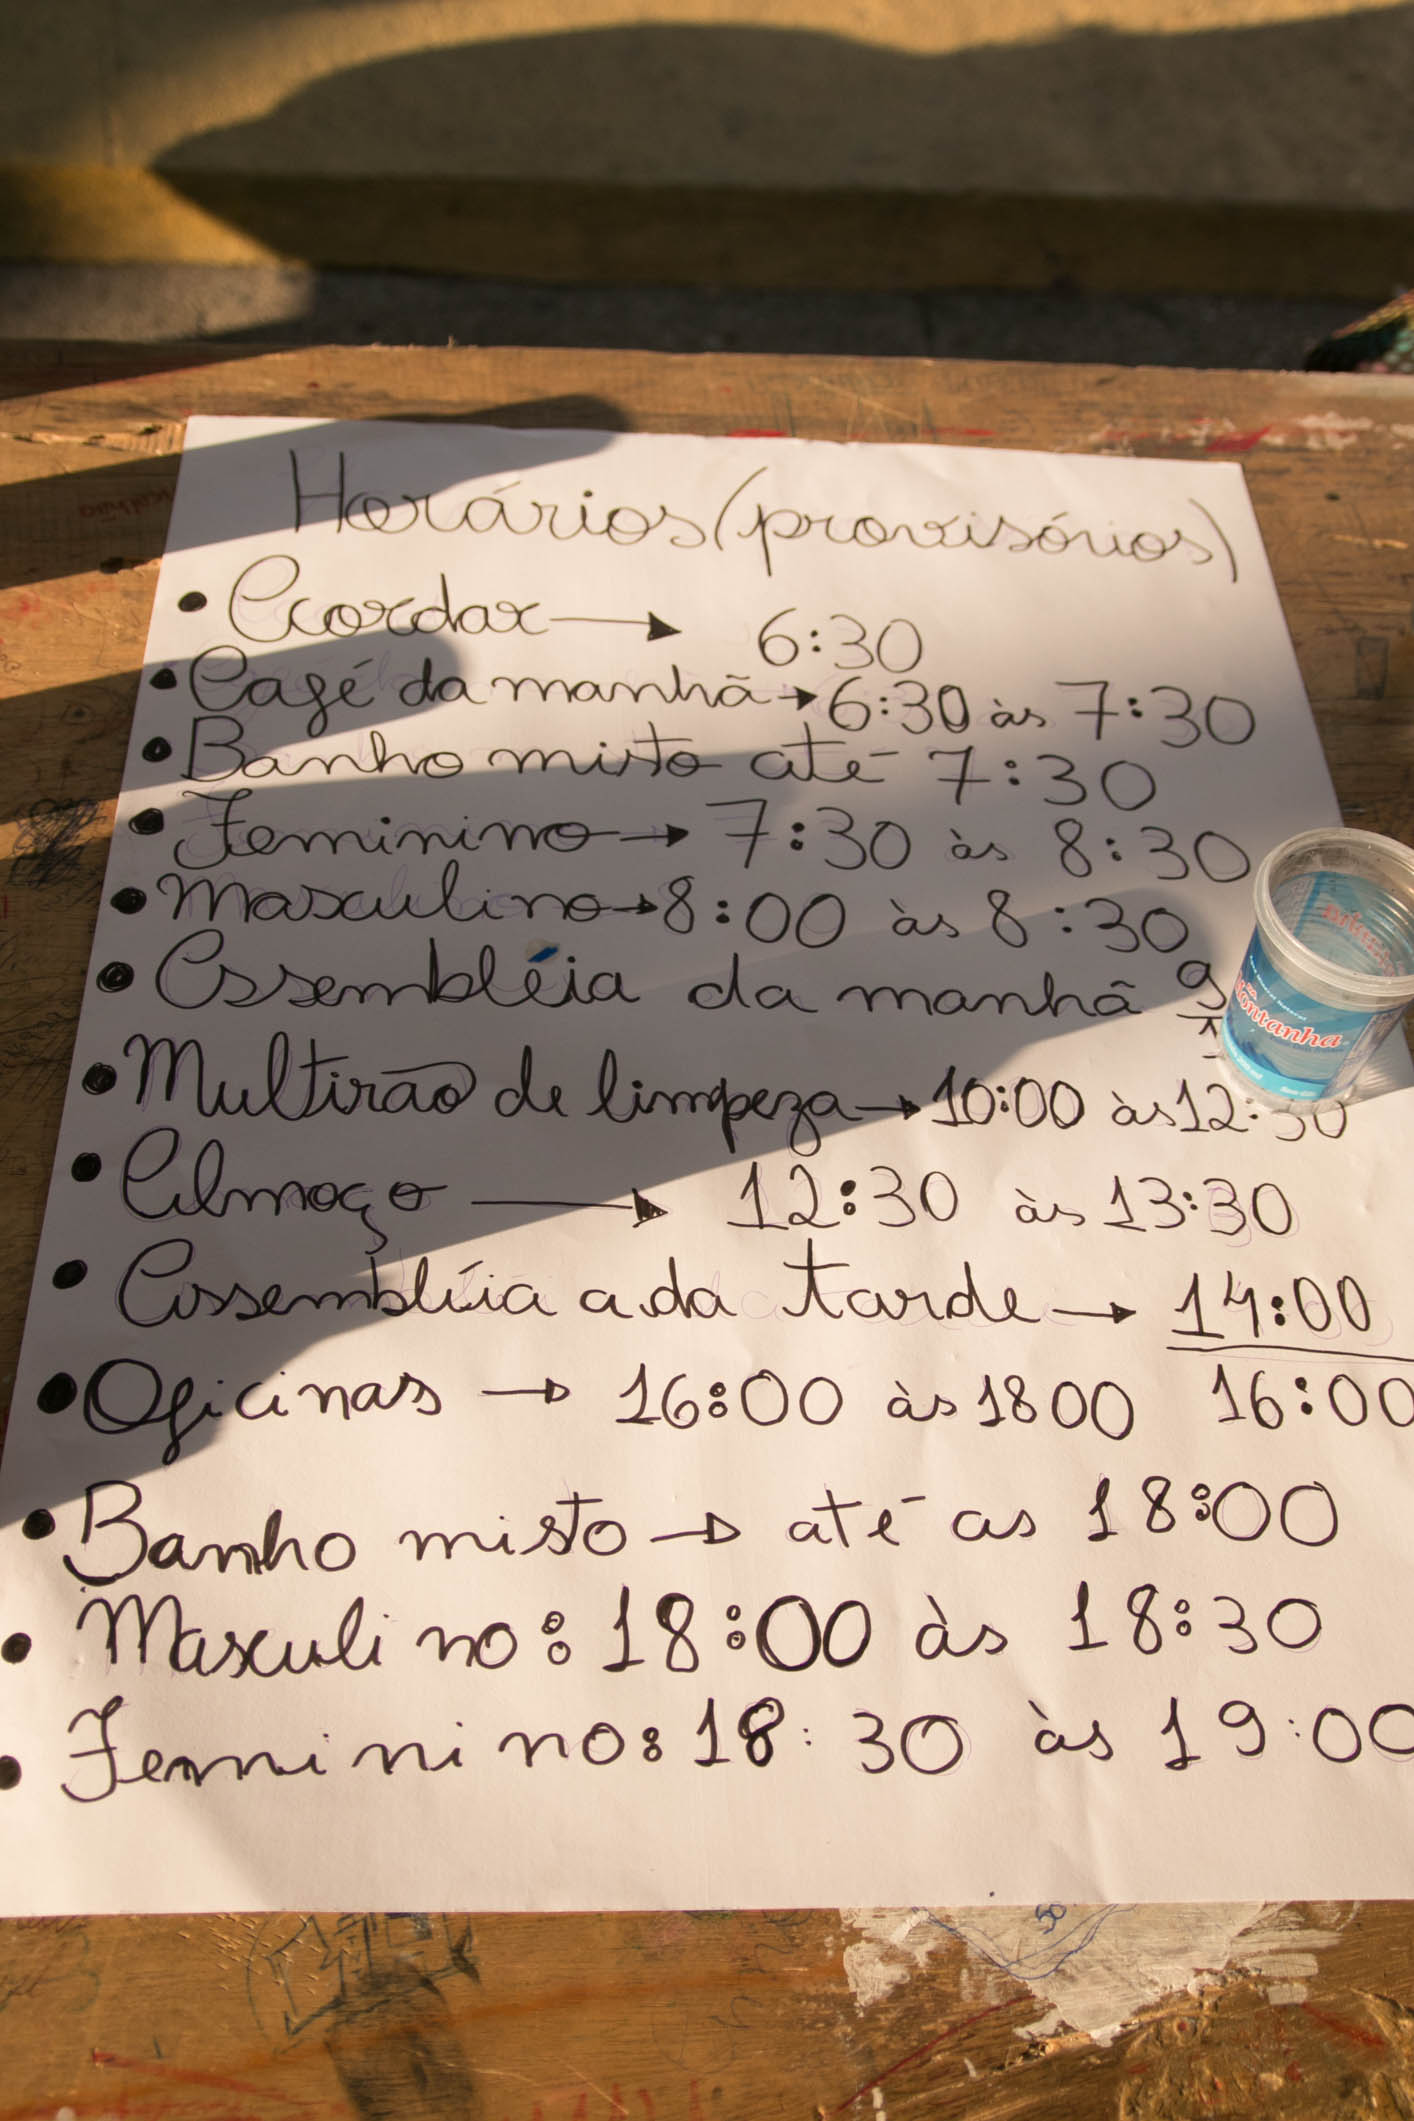 Horários (provisórios)
• Acordar → 6:30
• Café da manhã → 6:30 às 7:30
• Banho misto até 7:30
• Feminino → 7:30 às 8:30
• Masculino → 8:00 às 8:30
• Assembléia da manhã 9
• Multirão de limpeza → 10:00 às 12:30
• Almoço → 12:30 às 13:30
• Assembléia a da tarde → 14:00
• Oficinas → 16:00 às 1800 16:00
• Banho misto → até as 18:00
• Masculino: 18:00 às 18:30
• Feminino: 18:30 às 19:00
Montanha
50